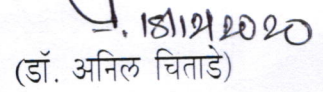 18/12/2020
(डॉ. अनिल चिताडे)